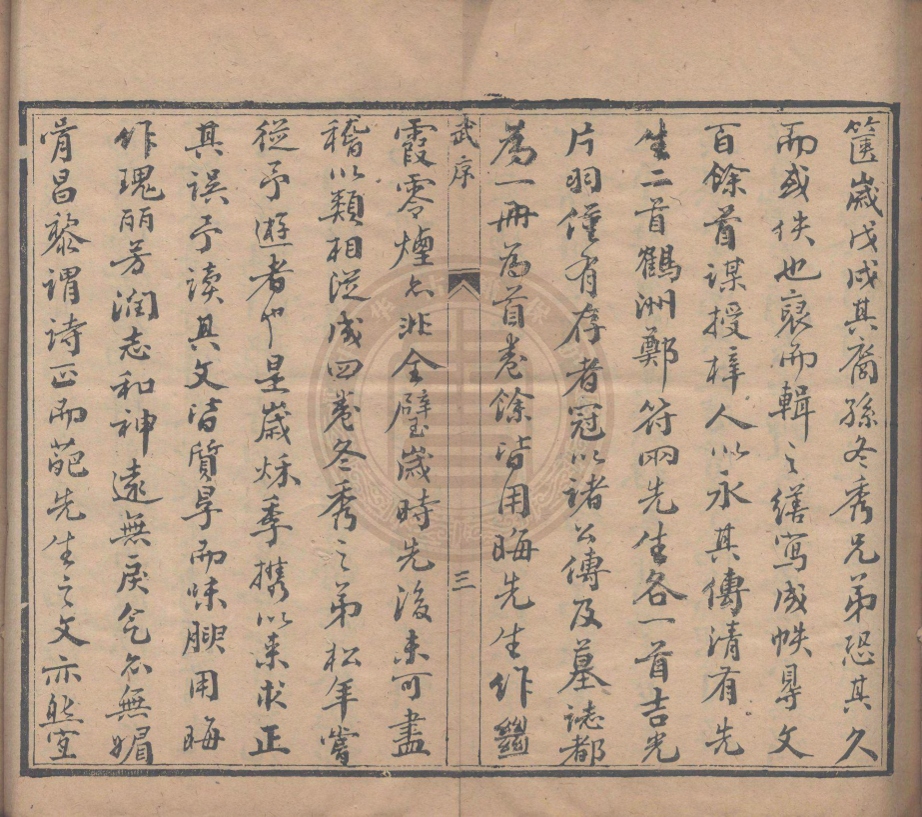 箧嵗戊戌其裔孫冬秀兄弟恐其久
而或佚也裒而輯之繕寫成帙得文
百餘首謀授梓人以永其傳清有先
生二首鶴洲鄭符兩先生各一首吉光
片羽僅有存者冠以諸公傳及墓誌都
為一冊為首卷餘皆用晦先生作
武序
三
霞零煙亦非全璧嵗時先後未可盡
稽以類相從成四卷冬秀之弟松年嘗
從予遊者也是嵗秌季携以來求正
其誤予讀其文清質厚而味腴用晦
作瑰丽芳润志和神遠無戾气亦無媚
骨昌黎謂诗正而葩先生之文亦然宜